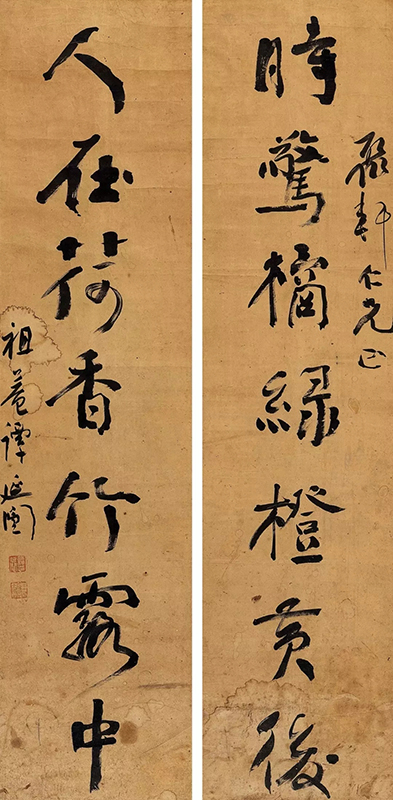 軒仁兄正
時驚橘綠橙黃後
人在荷香竹露中
祖菴譚延闓